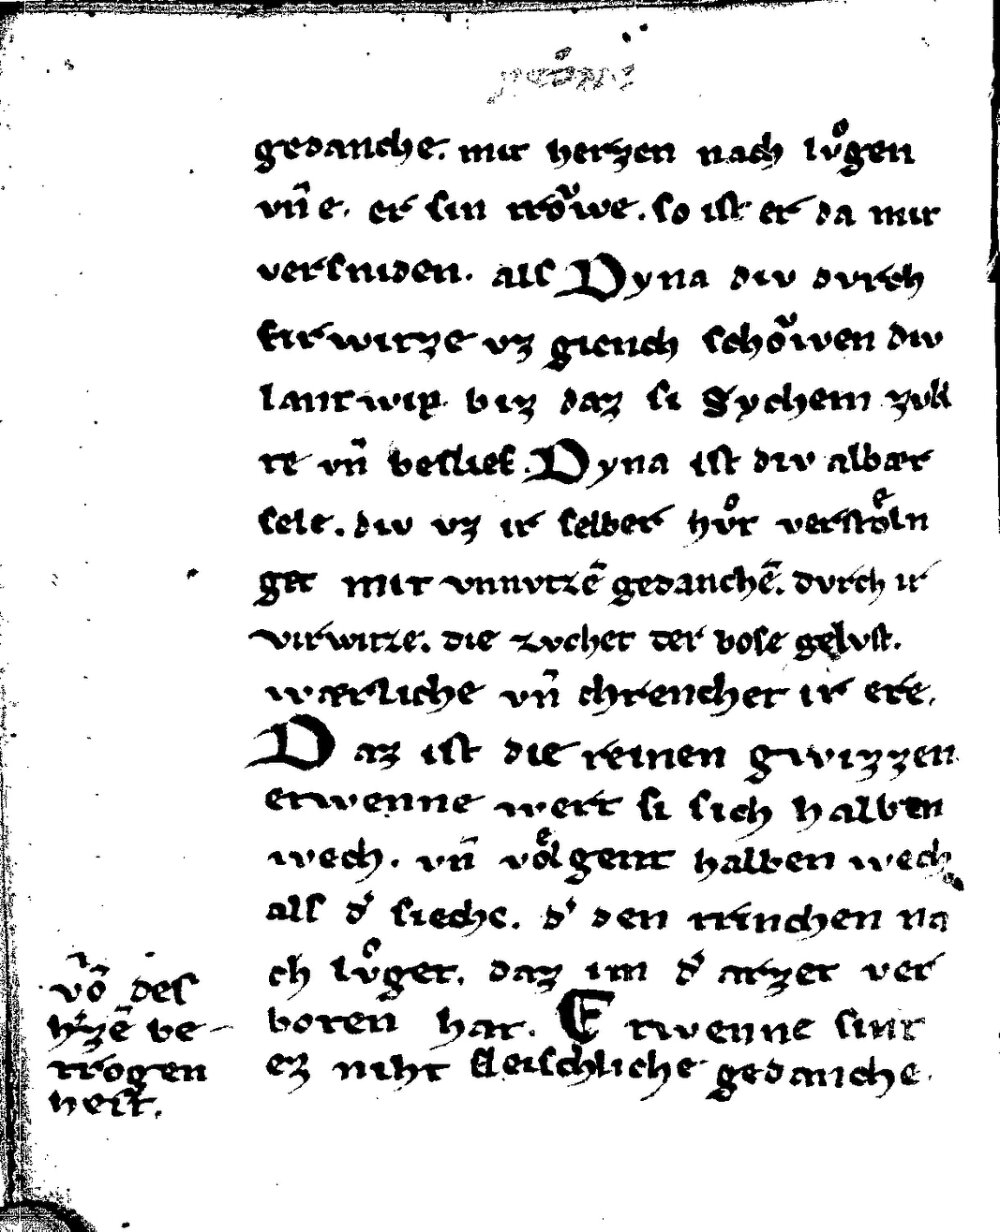 gedanche. mit herzen nach lvͦgen
vn̄ e. er sin trovͮwe. so ist er da mit
versniden. als Dyna div dvrch
firwitze vz giench schovͮwen div
lantwip. biz daz si Sychem zvkt
te vn̄ beslief. Dyna ist div albær
sele. div vz ir selber hvͦt verstoͤln
get mit vnnvtzē gedanchē. dvrch ir
virwitze. die zvchet der bose gelvst.
wærliche vn̄ chrenchet ir ere.
Daz ist die reinen gwizzen
etwenne wert si sich halben
wech. vn̄ voͤlgent halben wech
als dʼ sieche. dʼ den trinchen na
ch lvͦget. daz im dʼ artzet ver
boten hat. Etwenne sint
ez niht fleischliche gedanche.
vō des
hʼzē be
trogen
heit.